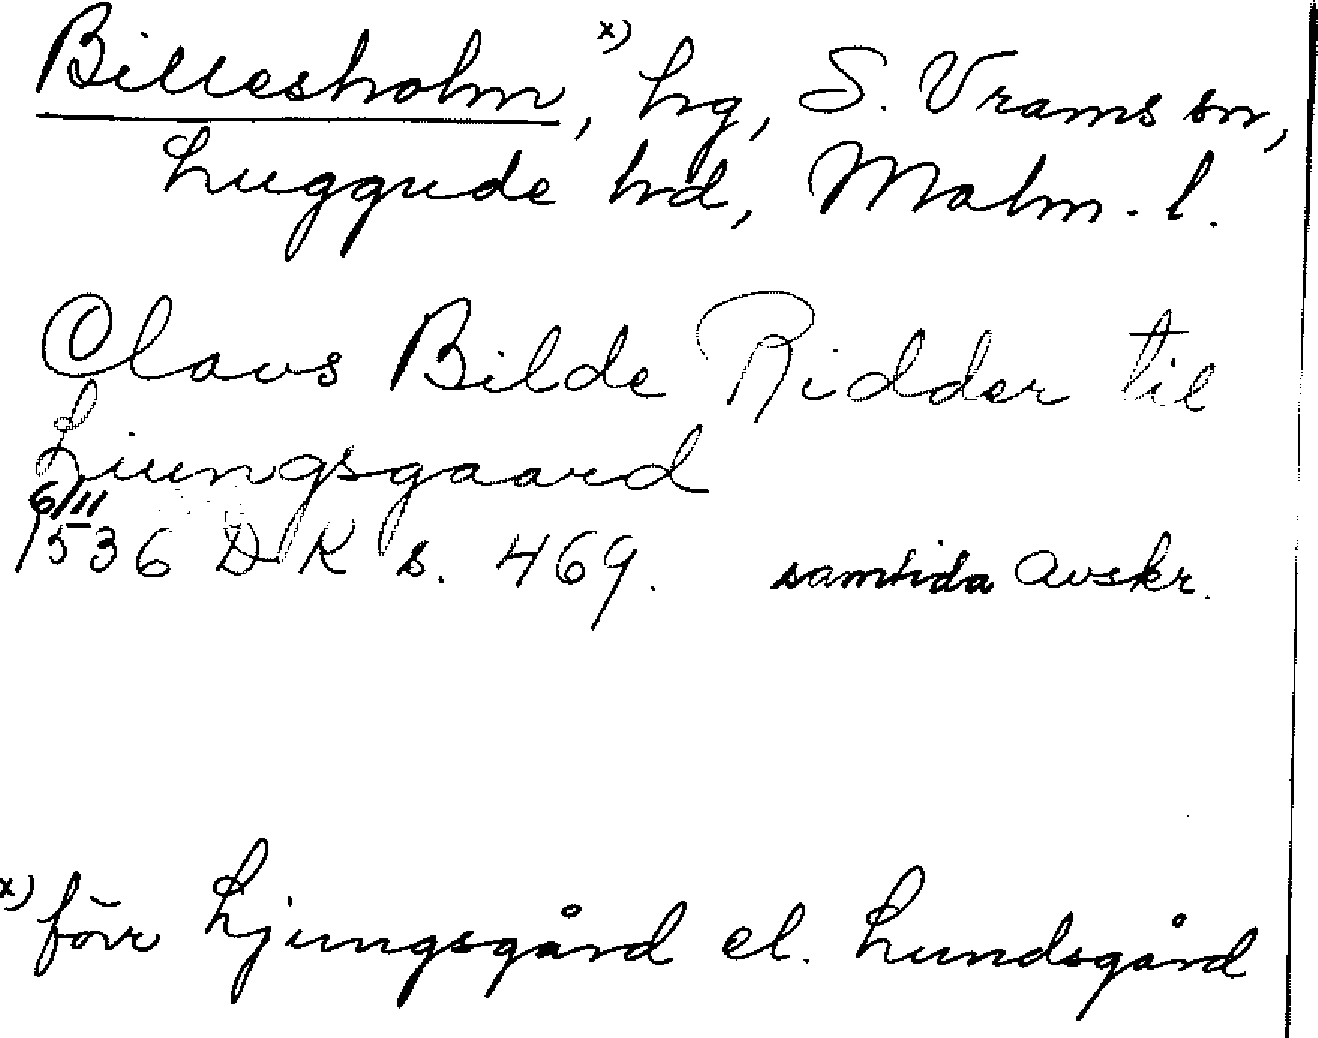 Billesholm, x) hg, S. Vrams sn,
Luggude hd, Malm. l.
Claus Bilde Ridder til
Liungsgaard
6/11
1536 DK s. 469. samtida avskr.
x) förr Ljungsgård el. Lundsgård